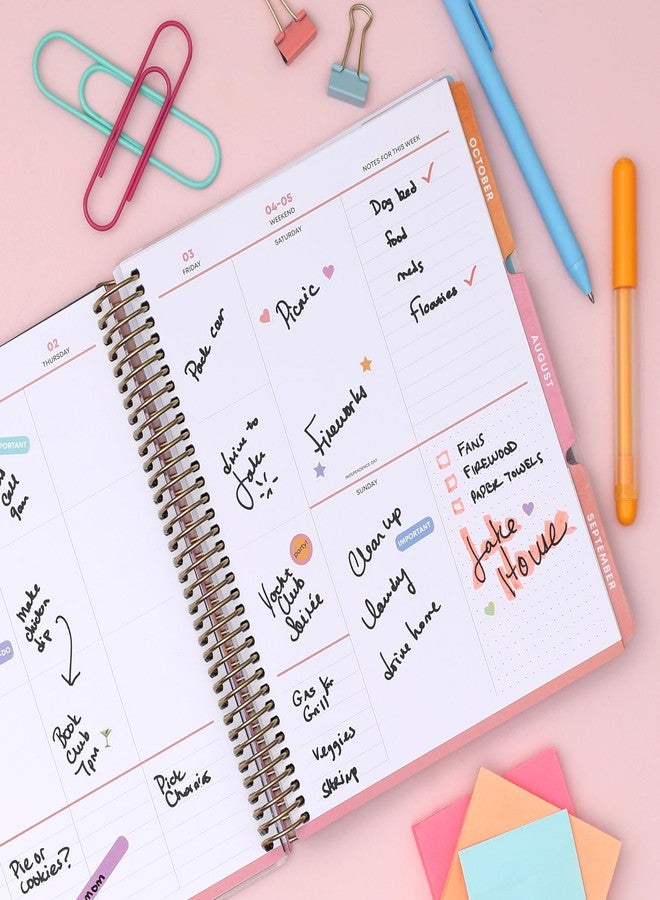 02
THURSDAY
PORTANT
Call
9am
Make
chicken
dip
DO
Book
Club
7pm
Pick
Cherries
Pie or
cookies?
mom
03
FRIDAY
Pack car
drive to
Lake
party!
Yacht
Club
Soirée
Gas for
Grill
Veggies
Shrimp
04-05
WEEKEND
SATURDAY
Picnic
Fireworks
INDEPENDENCE DAY
SUNDAY
Clean up
IMPORTANT
laundry
drive home
NOTES FOR THIS WEEK
Dog bed
food
meds
Floaties
FANS
FIREWOOD
PAPER TOWELS
Lake
House
OCTOBER
AUGUST
SEPTEMBER